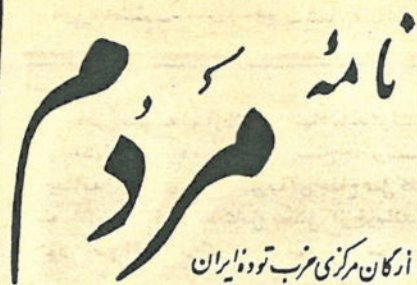 نامهٔ
مَرْدُم
ارگان مرکزی حزب تودهٔ ایران